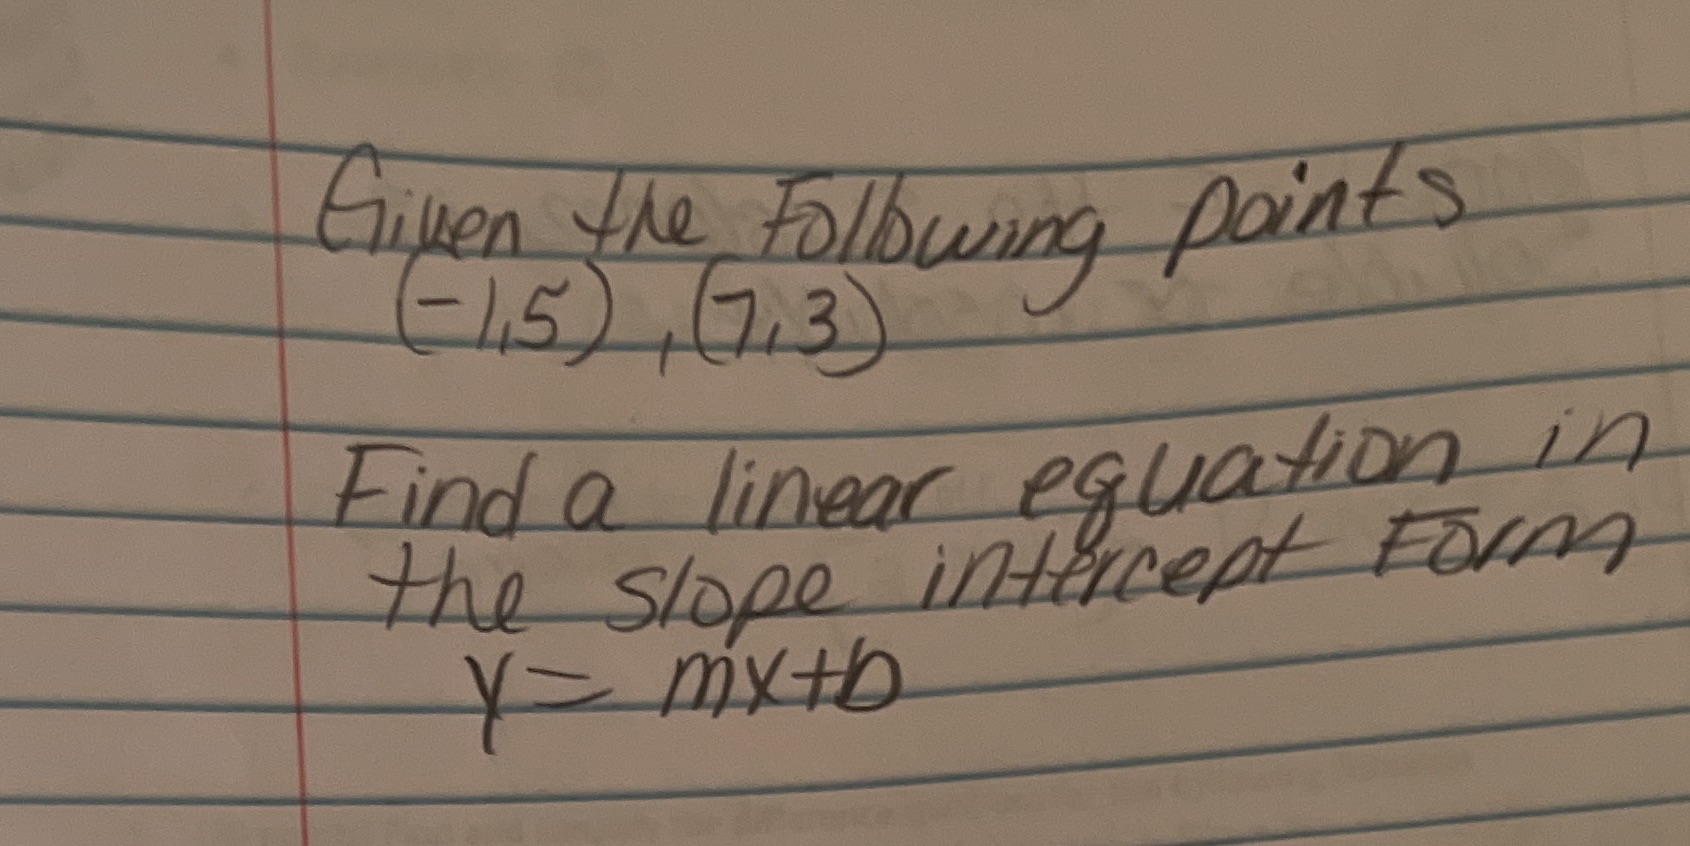 Given the Following points
(-1,5), (7,3)
Find a linear equation in
the slope intercept Form
y = mx+b